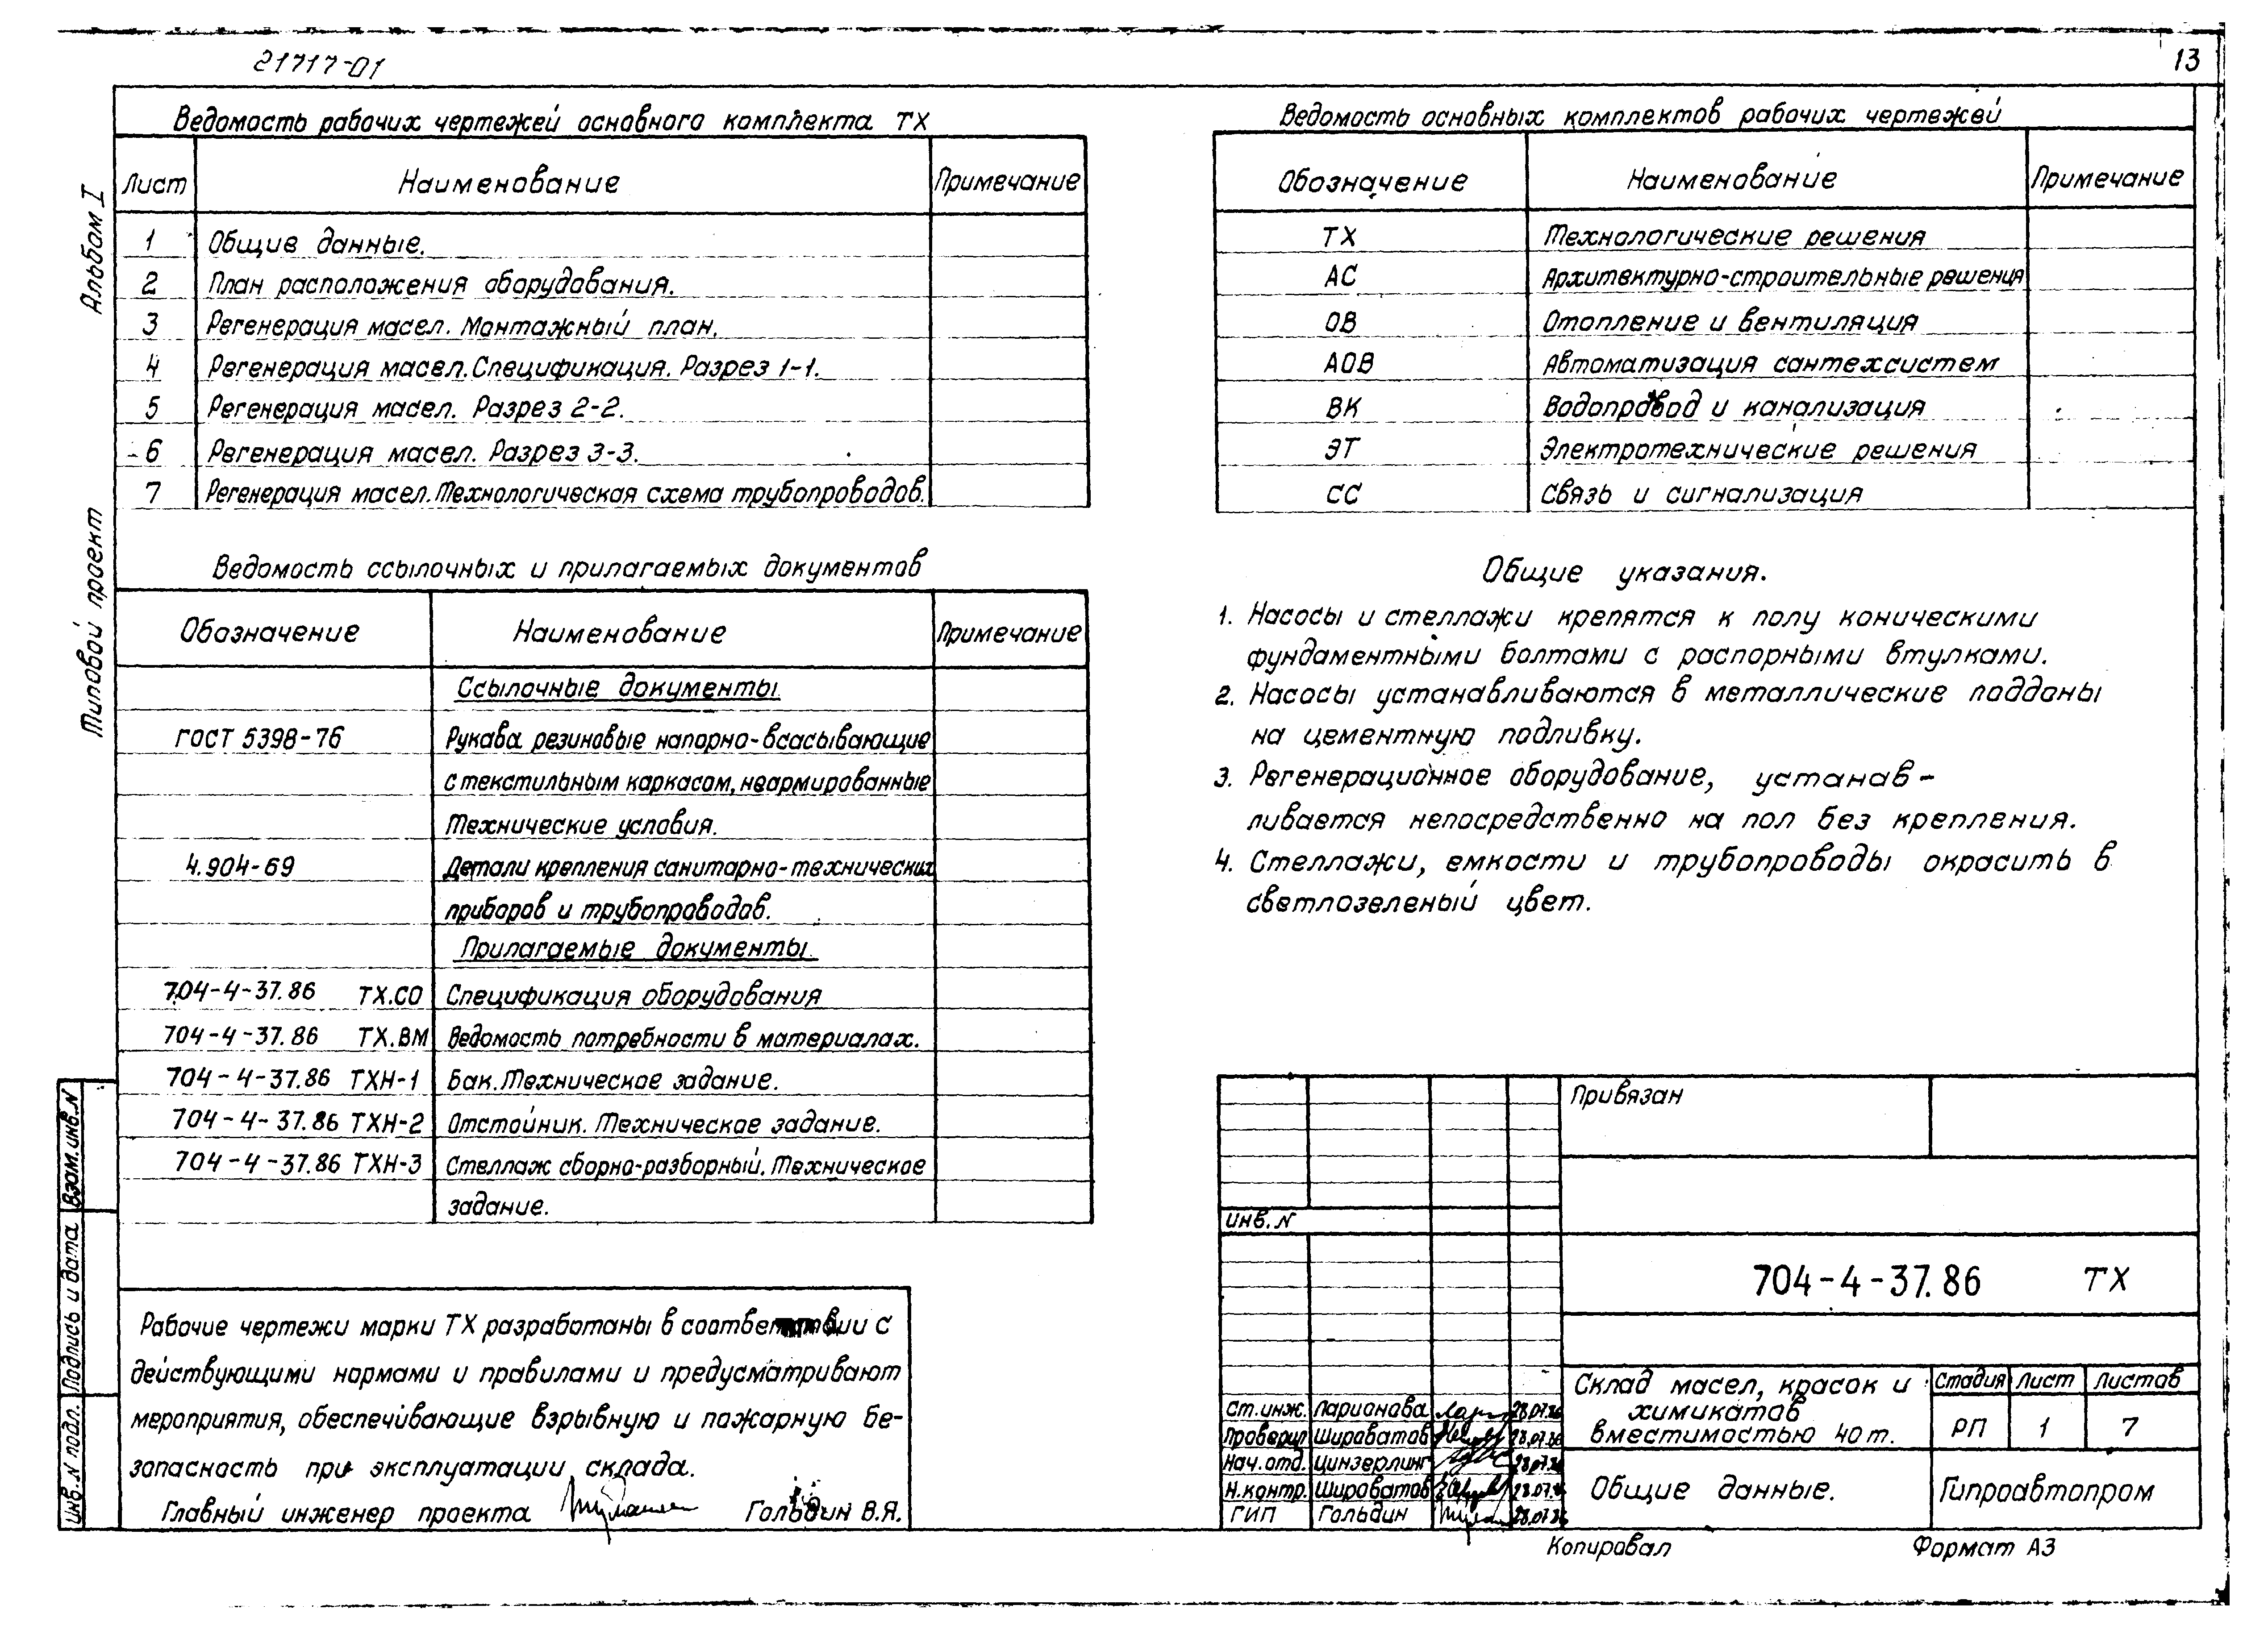 21717-01
13
Альбом I
Типовой проект
Ведомость рабочих чертежей основного комплекта ТХ
Лист Наименование Примечание
1 Общие данные.
2 План расположения оборудования.
3 Регенерация масел. Монтажный план.
4 Регенерация масел. Спецификация. Разрез 1-1.
5 Регенерация масел. Разрез 2-2.
6 Регенерация масел. Разрез 3-3.
7 Регенерация масел. Технологическая схема трубопроводов.
Ведомость ссылочных и прилагаемых документов
Обозначение Наименование Примечание
Ссылочные документы
ГОСТ 5398-76 Рукава резиновые напорно-всасывающие
с текстильным каркасом, неармированные
Технические условия.
4.904-69 Детали крепления санитарно-технических
приборов и трубопроводов.
Прилагаемые документы
704-4-37.86 ТХ.СО Спецификация оборудования
704-4-37.86 ТХ.ВМ Ведомость потребности в материалах.
704-4-37.86 ТХН-1 Бак. Техническое задание.
704-4-37.86 ТХН-2 Отстойник. Техническое задание.
704-4-37.86 ТХН-3 Стеллаж сборно-разборный. Техническое
задание.
Рабочие чертежи марки ТХ разработаны в соответствии с
действующими нормами и правилами и предусматривают
мероприятия, обеспечивающие взрывную и пожарную бе-
зопасность при эксплуатации склада.
Главный инженер проекта Гольдин В.Я.
Взам. инв. N
Подпись и дата
Инв. N подл.
Ведомость основных комплектов рабочих чертежей
Обозначение Наименование Примечание
ТХ Технологические решения
АС Архитектурно-строительные решения
ОВ Отопление и вентиляция
АОВ Автоматизация сантехсистем
ВК Водопровод и канализация
ЭТ Электротехнические решения
СС Связь и сигнализация
Общие указания.
1. Насосы и стеллажи крепятся к полу коническими
фундаментными болтами с распорными втулками.
2. Насосы устанавливаются в металлические поддоны
на цементную подливку.
3. Регенерационное оборудование, устанав-
ливается непосредственно на пол без крепления.
4. Стеллажи, емкости и трубопроводы окрасить в
светлозеленый цвет.
Привязан
Инв. N
704-4-37.86 ТХ
Склад масел, красок и
химикатов
вместимостью 40т.
Стадия Лист Листов
РП 1 7
Ст. инж. Ларионова 28.07.86
Проверил Широватов 28.07.86
Нач. отд. Цинзерлинг 28.07.86
Н. контр. Широватов 28.07.86
ГИП Гольдин 28.07.86
Общие данные.
Гипроавтопром
Копировал Формат А3